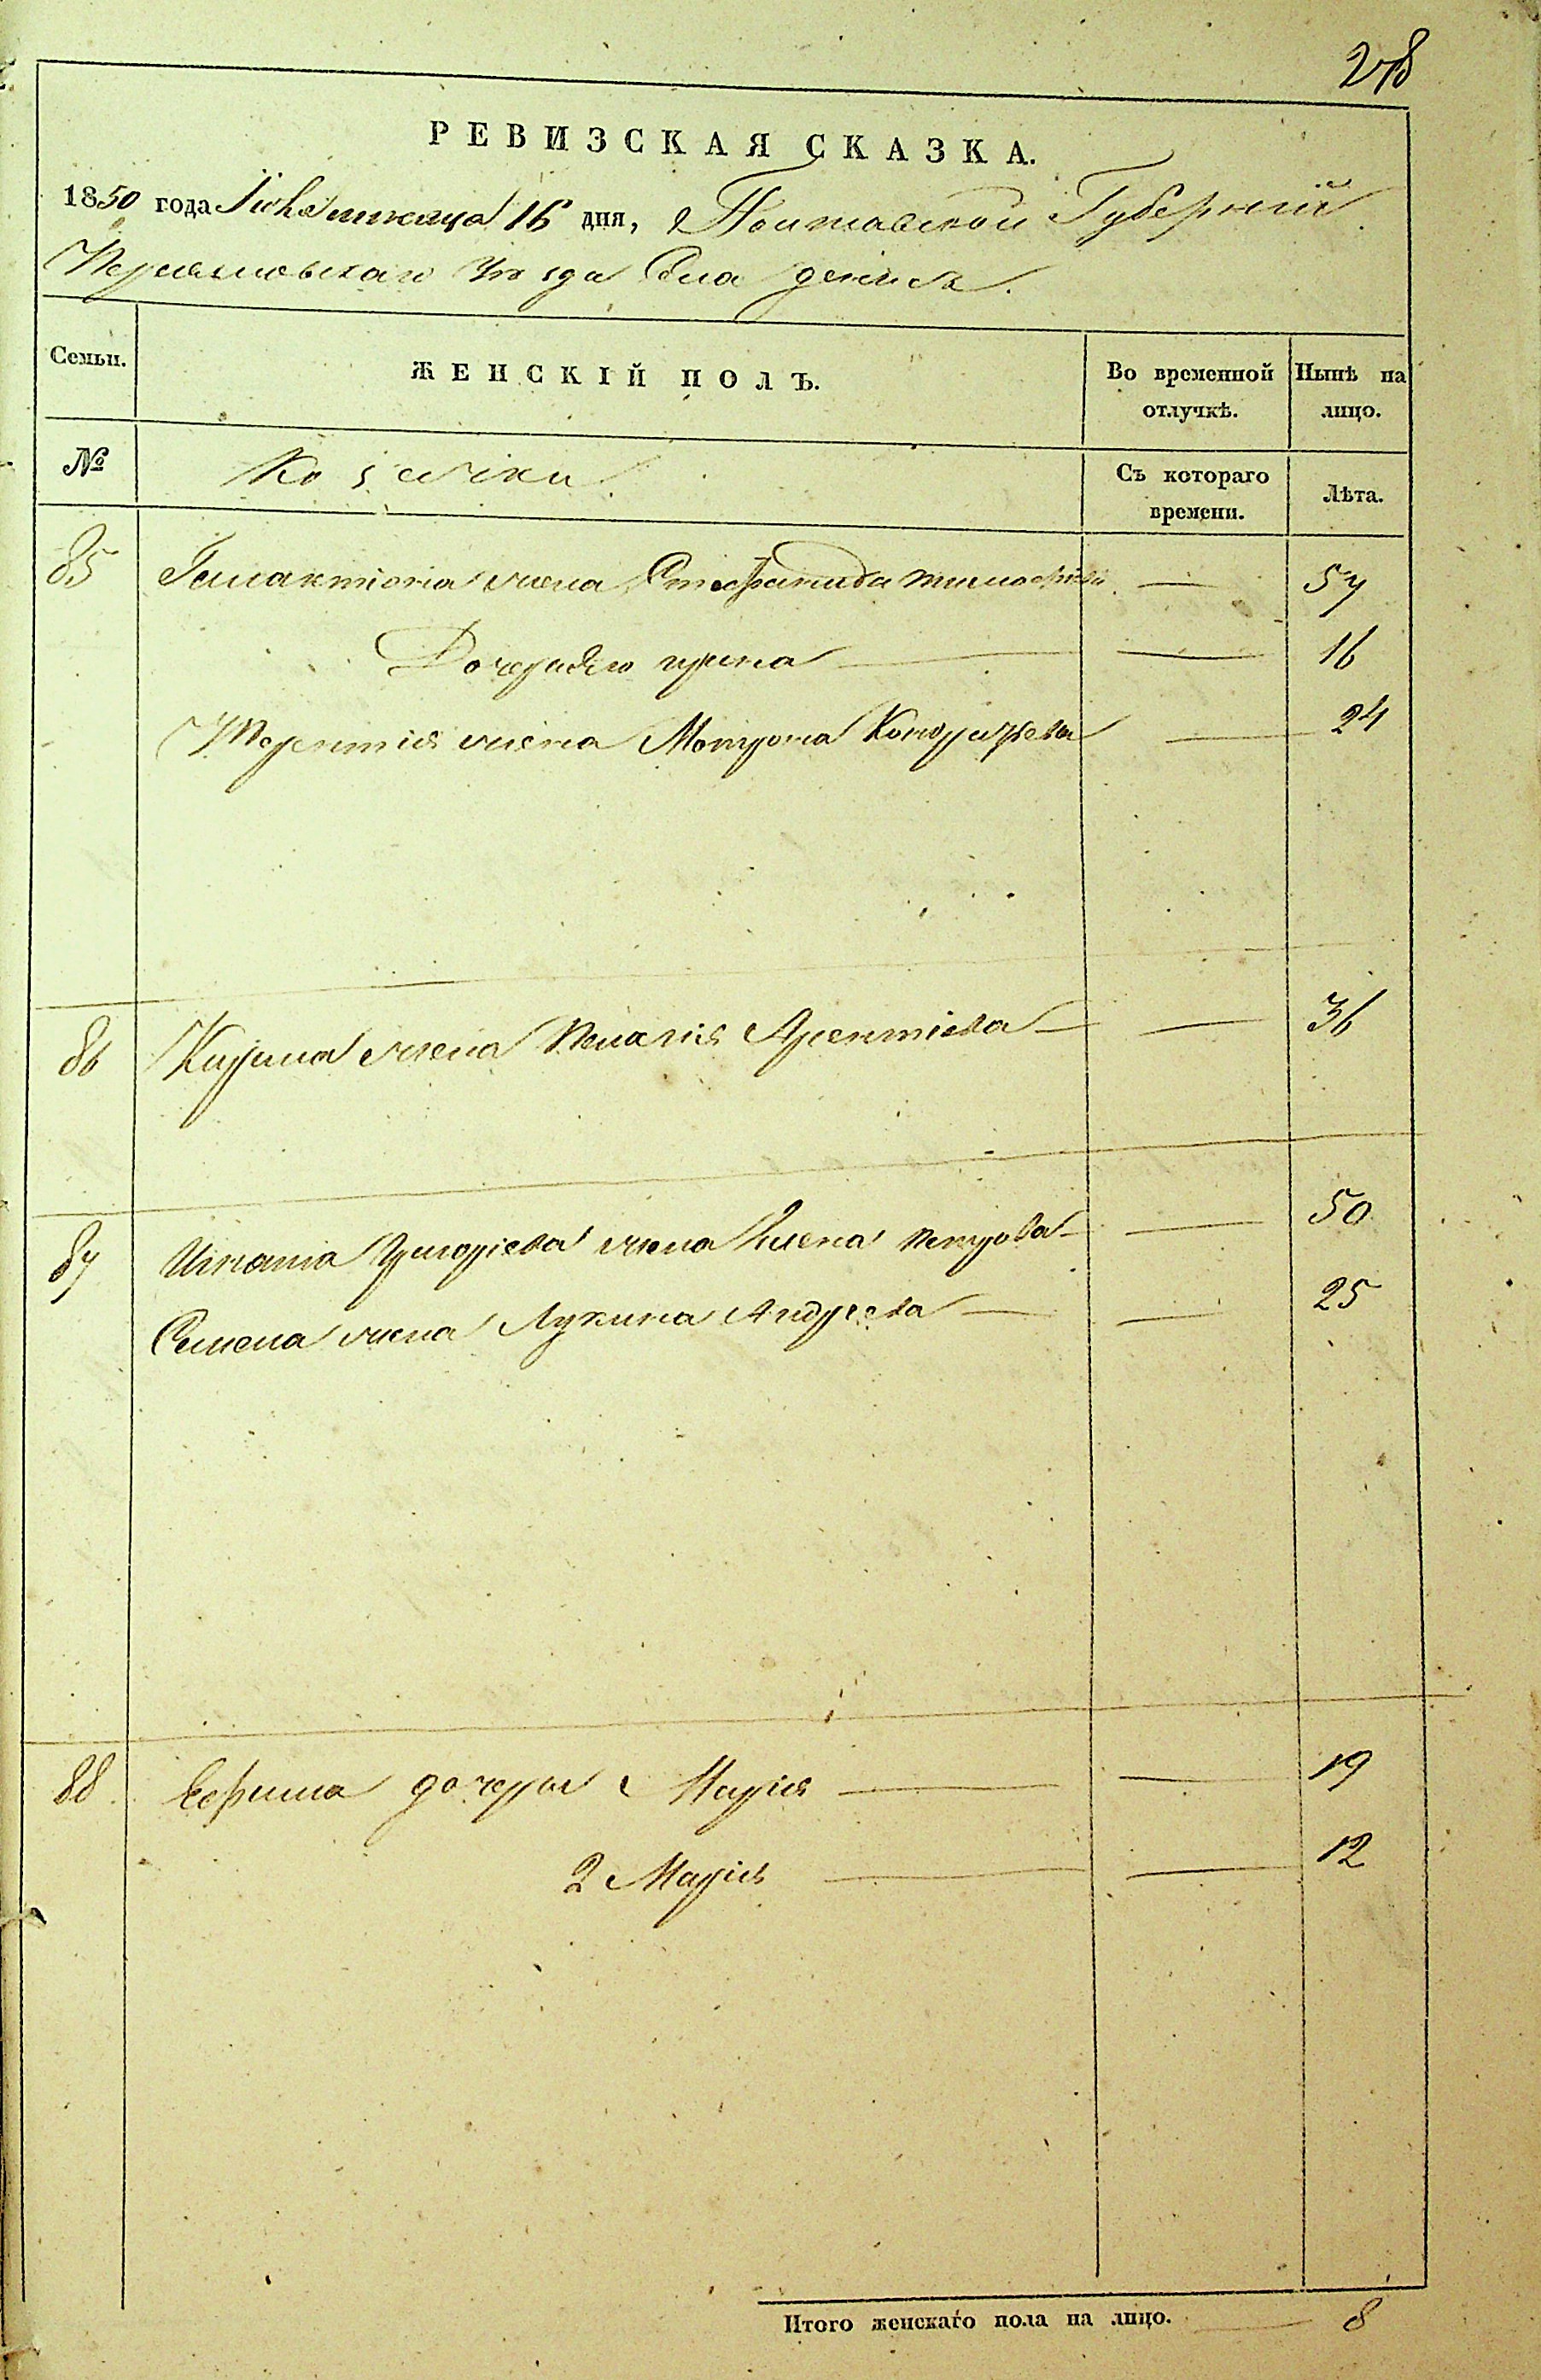 278
РЕВИЗСКАЯ СКАЗКА.
1850 года Мсяца 16 дня, Полтавской Губерніи
Переяславскаго Уѣзда Села Денисъ.
Семьи. ЖЕНСКІЙ ПОЛЪ. Во временной отлучкѣ. Нынѣ на лицо.
№ Козачки Съ котораго времени. Лѣта.
85 Галактіона жена Стефанида Тимофѣева — 57
Дочь его Ирина — 16
Терентія жена Мотрона Кондратьева — 24
86 Кирила жена Пелагія Арентіева — 36
87 Игнатія Григоріева жена Елена Петрова — 50
Семена жена Лукина Андреева — 25
88 Ефима дочери Марія — 19
2 Марія — 12
Итого женскаго пола на лицо. — 8